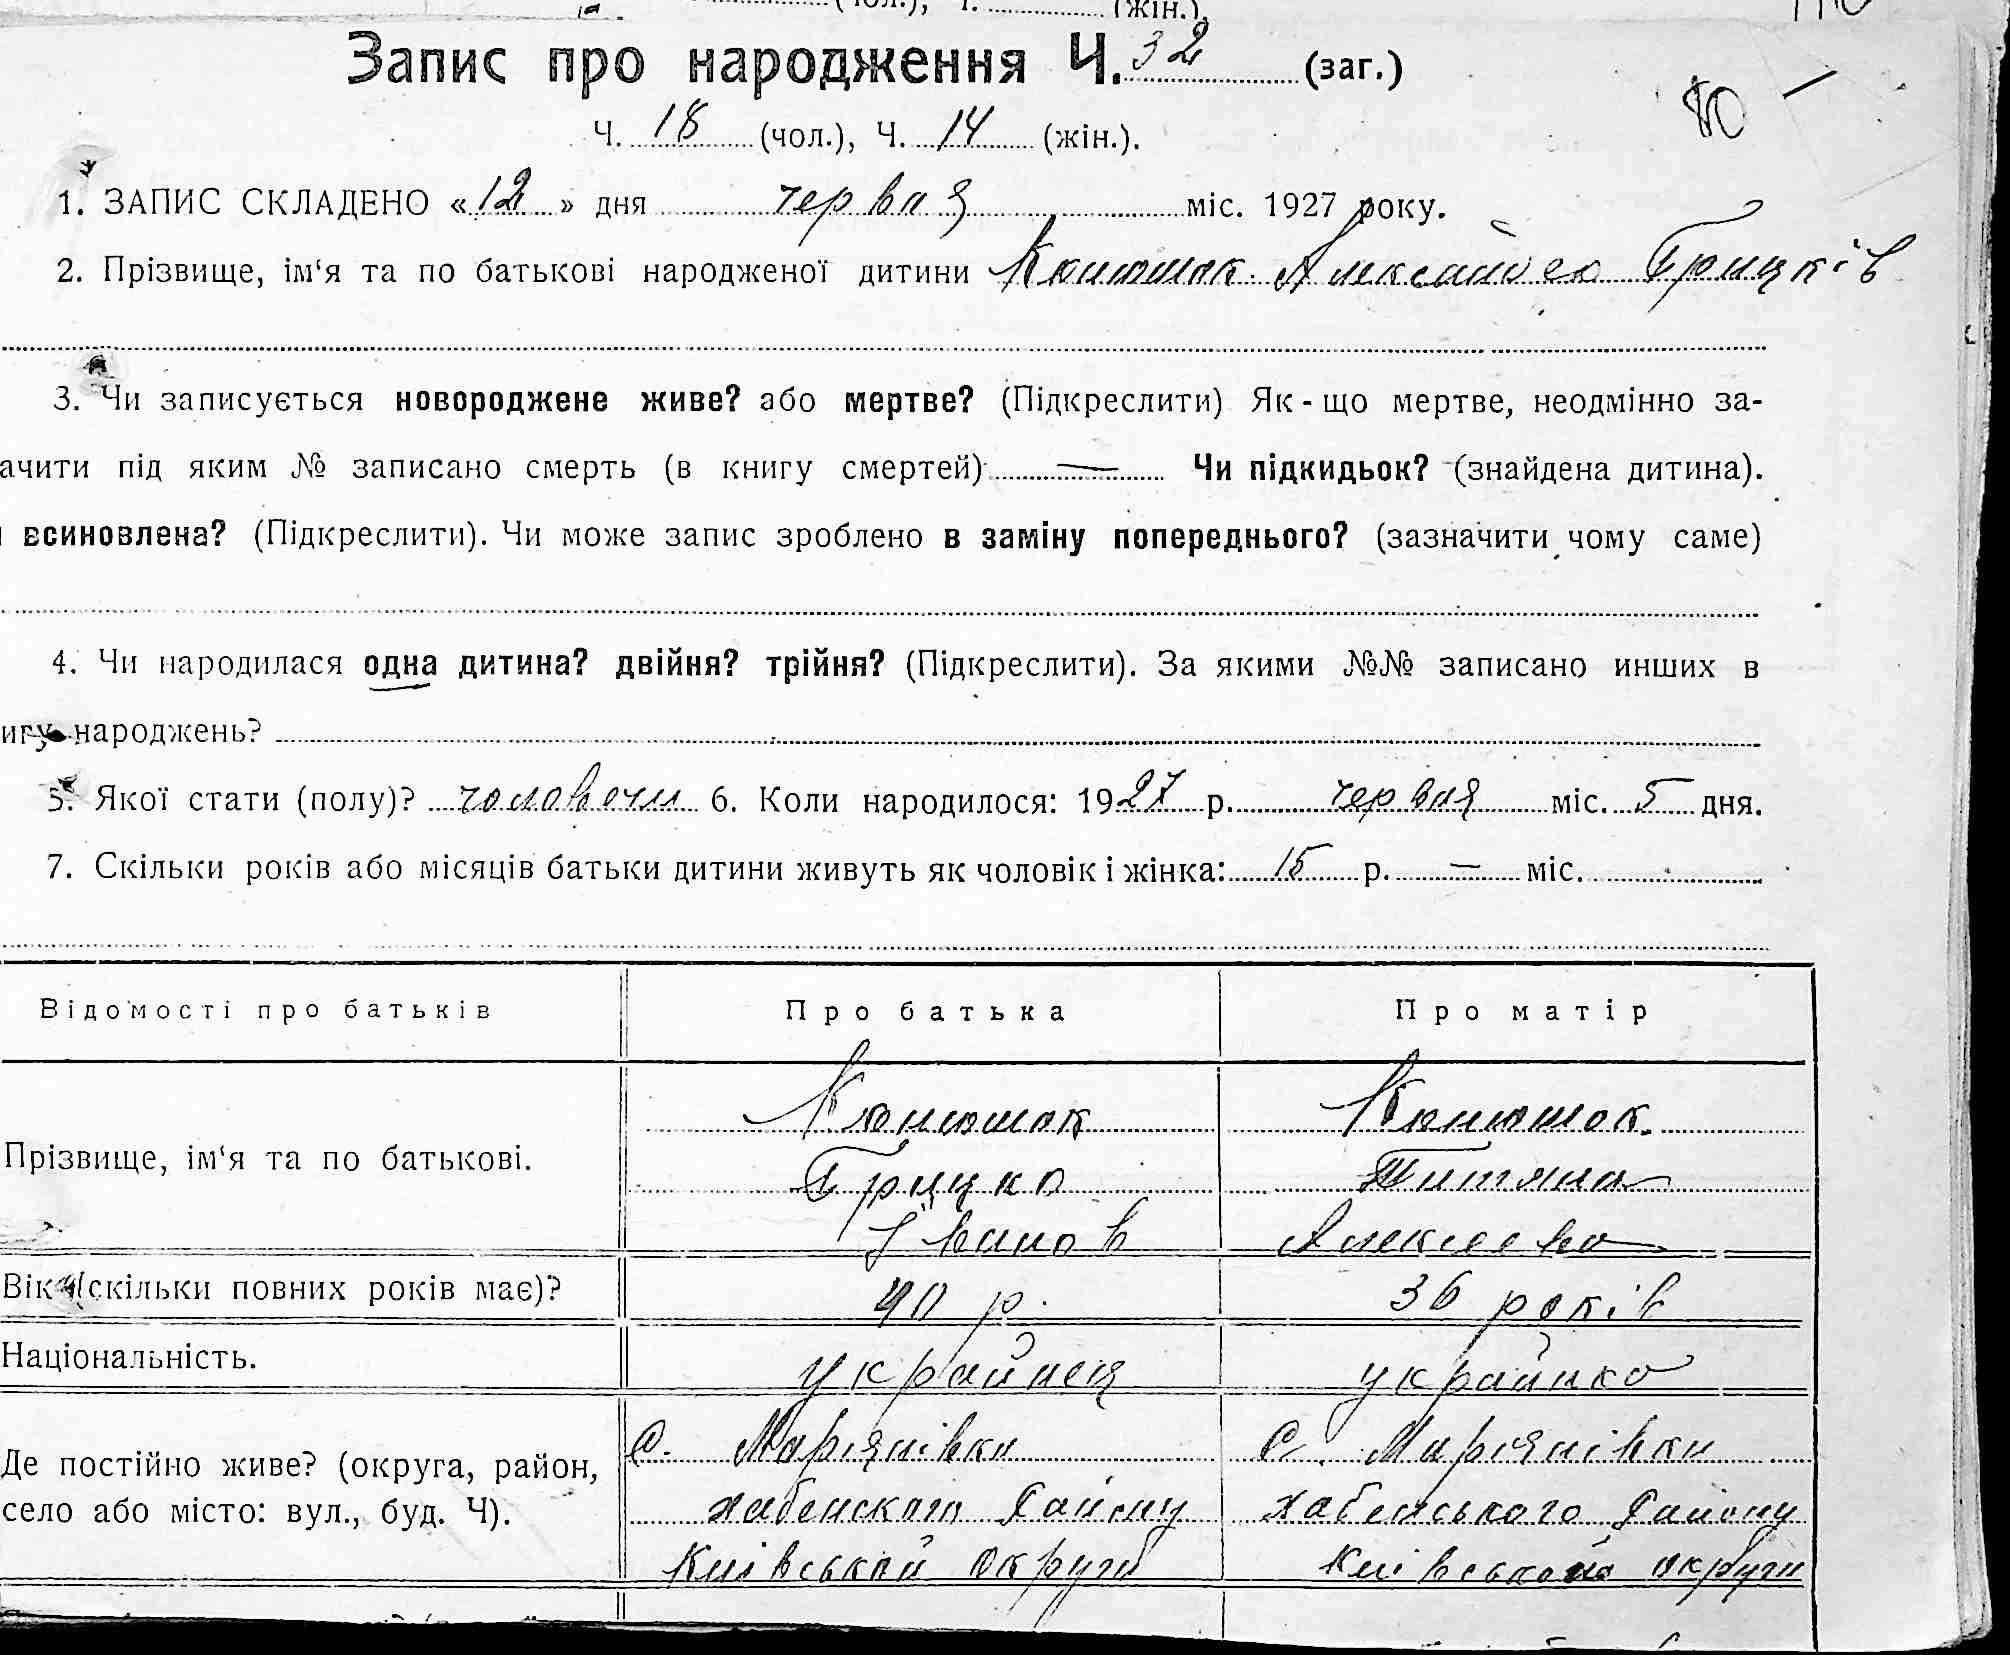 (чол.), Ч. (жін.).
Запис про народження Ч. 32 (заг.)
Ч. 18 (чол.), Ч. 14 (жін.).
1. ЗАПИС СКЛАДЕНО «12» дня червня міс. 1927 року.
2. Прізвище, ім‘я та по батькові народженої дитини Конюшок Грицків
3. Чи записується новороджене живе? або мертве? (Підкреслити) Як-що мертве, неодмінно за-
ачити під яким № записано смерть (в книгу смертей) — Чи підкидьок? (знайдена дитина).
и всиновлена? (Підкреслити). Чи може запис зроблено в заміну попереднього? (зазначити чому саме)
4. Чи народилася одна дитина? двійня? трійня? (Підкреслити). За якими №№ записано инших в
игу народжень?
5. Якої стати (полу)? чоловечи 6. Коли народилося: 1927 р. червня міс. 5 дня.
7. Скільки років або місяців батьки дитини живуть як чоловік і жінка: 15 р. — міс.
Відомості про батьків Про батька Про матір
Прізвище, ім‘я та по батькові. Конюшок Конюшок
Грицко Титяна
Іванов Алексеева
Вік (скільки повних років має)? 40 р. 36 років
Національність. украйнец украйнка
Де постійно живе? (округа, район, село або місто: вул., буд. Ч). С. Марянівка С. Марянівка
Хабенского Району Хабенського Району
Київськой Округи Київської округи